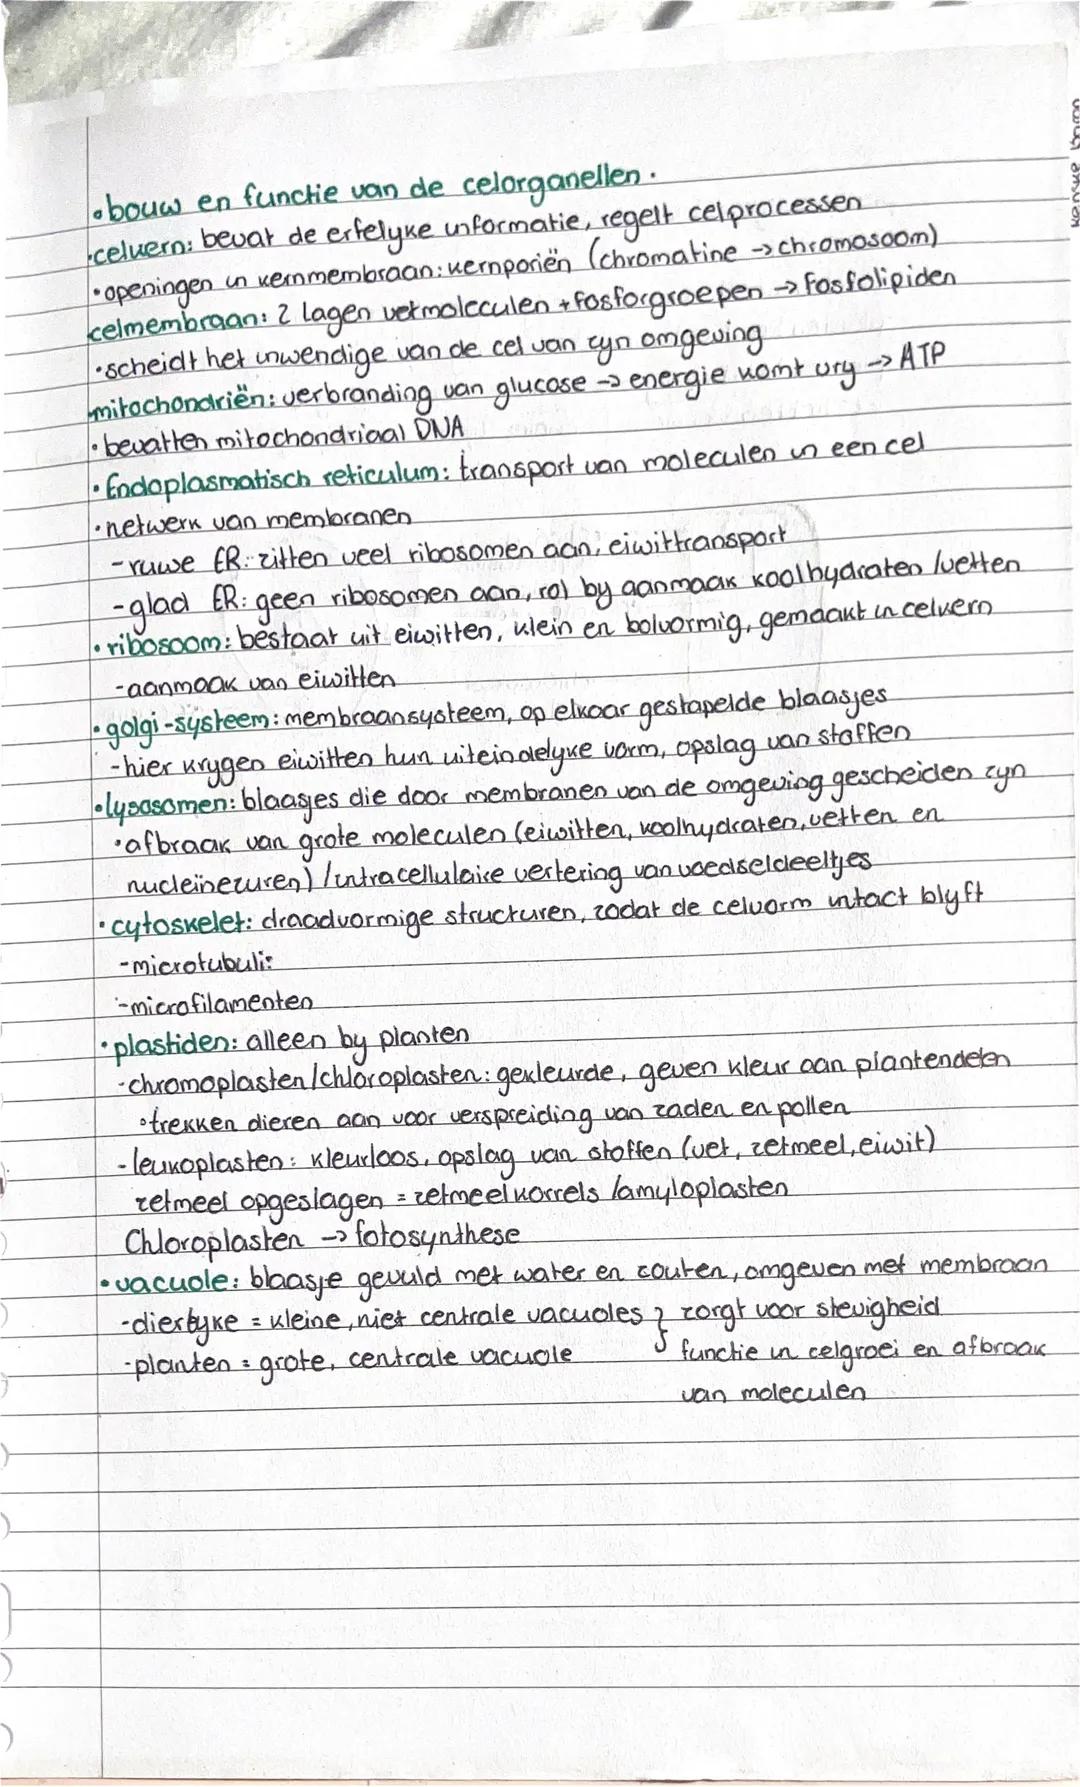 • bouw en functie van de celorganellen.
• celkern: bevat de erfelyke informatie, regelt celprocessen
• openingen in kernmembraan: kernporiën (chromatine → chromosoom)
celmembraan: 2 lagen vetmoleculen + fosforgroepen → fosfolipiden
• scheidt het inwendige van de cel van zyn omgeving
mitochondriën: verbranding van glucose → energie komt vry → ATP
• bevatten mitochondriaal DNA
• Endoplasmatisch reticulum: transport van moleculen in een cel
• netwerk van membranen
- ruwe ER: zitten veel ribosomen aan, eiwittransport
- glad ER: geen ribosomen aan, rol by aanmaak koolhydraten/vetten
• ribosoom: bestaat uit eiwitten, klein en bolvormig, gemaakt in celkern
- aanmaak van eiwitten
• golgi-systeem: membraansysteem, op elkaar gestapelde blaasjes
- hier krygen eiwitten hun uiteindelyke vorm, opslag van stoffen
• lysosomen: blaasjes die door membranen van de omgeving gescheiden zyn
• afbraak van grote moleculen (eiwitten, koolhydraten, vetten en
nucleïnezuren) / intracellulaire vertering van voedseldeeltjes
• cytoskelet: draadvormige structuren, zodat de celvorm intact blyft
- microtubuli:
- microfilamenten
• plastiden: alleen by planten
- chromoplasten/chloroplasten: gekleurde, geven kleur aan plantendelen
° trekken dieren aan voor verspreiding van zaden en pollen
- leukoplasten: kleurloos, opslag van stoffen (vet, zetmeel, eiwit)
zetmeel opgeslagen = zetmeelkorrels /amyloplasten
Chloroplasten → fotosynthese
• vacuole: blaasje gevuld met water en zouten, omgeven met membraan
- dierlyke = kleine, niet centrale vacuoles } zorgt voor stevigheid
- planten = grote, centrale vacuole } functie in celgroei en afbraak
van moleculen